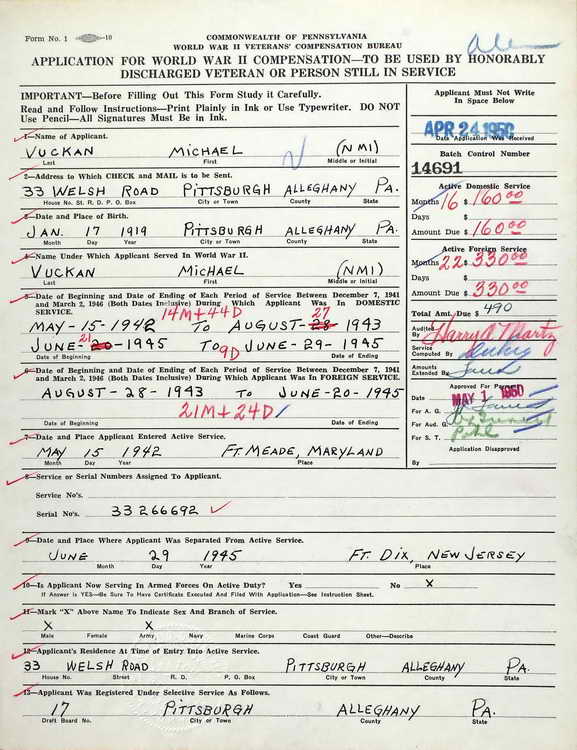 Form No. 1 -10
COMMONWEALTH OF PENNSYLVANIA
WORLD WAR II VETERANS' COMPENSATION BUREAU
APPLICATION FOR WORLD WAR II COMPENSATION—TO BE USED BY HONORABLY
DISCHARGED VETERAN OR PERSON STILL IN SERVICE
IMPORTANT—Before Filling Out This Form Study it Carefully.
Read and Follow Instructions—Print Plainly in Ink or Use Typewriter. DO NOT
Use Pencil—All Signatures Must Be in Ink.
Applicant Must Not Write
In Space Below
APR 24 1950
Data Application Was Received
Batch Control Number
14691
1—Name of Applicant.
VUCKAN MICHAEL (NMI)
Last First Middle or Initial
2—Address to Which CHECK and MAIL is to be Sent.
33 WELSH ROAD PITTSBURGH ALLEGHANY PA.
House No. St. R. D. P. O. Box City or Town County State
3—Date and Place of Birth.
JAN. 17 1919 PITTSBURGH ALLEGHANY PA.
Month Day Year City or Town County State
4—Name Under Which Applicant Served In World War II.
VUCKAN MICHAEL (NMI)
Last First Middle or Initial
5—Date of Beginning and Date of Ending of Each Period of Service Between December 7, 1941
and March 2, 1946 (Both Dates Inclusive) During Which Applicant Was In DOMESTIC
SERVICE.
14M+44D 27
MAY-15-1942 TO AUGUST-28-1943
21
JUNE-20-1945 TO JUNE-29-1945
9D
Date of Beginning Date of Ending
6—Date of Beginning and Date of Ending of Each Period of Service Between December 7, 1941
and March 2, 1946 (Both Dates Inclusive) During Which Applicant Was In FOREIGN SERVICE.
AUGUST-28-1943 TO JUNE-20-1945
21M+24D
Date of Beginning Date of Ending
7—Date and Place Applicant Entered Active Service.
MAY 15 1942 FT. MEADE, MARYLAND
Month Day Year Place
8—Service or Serial Numbers Assigned To Applicant.
Service No's.
Serial No's. 33266692
Active Domestic Service
Months 16 $ 160 00
Days $
Amount Due $ 160 00
Active Foreign Service
Months 22 $ 330 00
Days $
Amount Due $ 330 00
Total Amt. Due $ 490
Audited By Harry A Martz
Service
Computed By
Amounts
Extended By
Approved For Payment
Date MAY 1 1950
For A. G.
For Aud. G.
For S. T.
Application Disapproved
By
9—Date and Place Where Applicant Was Separated From Active Service.
JUNE 29 1945 FT. DIX, NEW JERSEY
Month Day Year Place
10—Is Applicant Now Serving In Armed Forces On Active Duty? Yes No X
If Answer is YES—Be Sure To Have Certificate Executed And Filed With Application—See Instruction Sheet.
11—Mark "X" Above Name To Indicate Sex and Branch of Service.
X X
Male Female Army Navy Marine Corps Coast Guard Other—Describe
12—Applicant's Residence At Time of Entry Into Active Service.
33 WELSH ROAD PITTSBURGH ALLEGHANY PA.
House No. Street R. D. P. O. Box City or Town County State
13—Applicant Was Registered Under Selective Service As Follows.
17 PITTSBURGH ALLEGHANY PA.
Draft Board No. City or Town County State